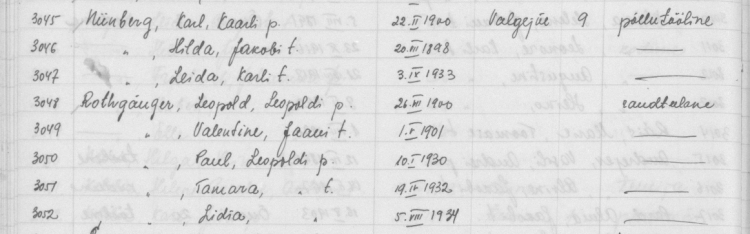 3045 Nünberg, Karl, Kaarli p. 22.II 1900 Valgejõe 9 põllutööline
3046 " , Hilda, Jakobi t. 20.III 1898 —
3047 " , Leida, Karli t. 3.IX 1933 —
3048 Rothgänger, Leopold, Leopoldi p. 26.III 1900 raudteelane
3049 " , Valentine, Jaani t. 1.V 1901 —
3050 " , Paul, Leopoldi p. 10.I 1930 —
3051 " , Tamara, " t. 19.IV 1932 —
3052 " , Lidia, " 5.VIII 1934 —